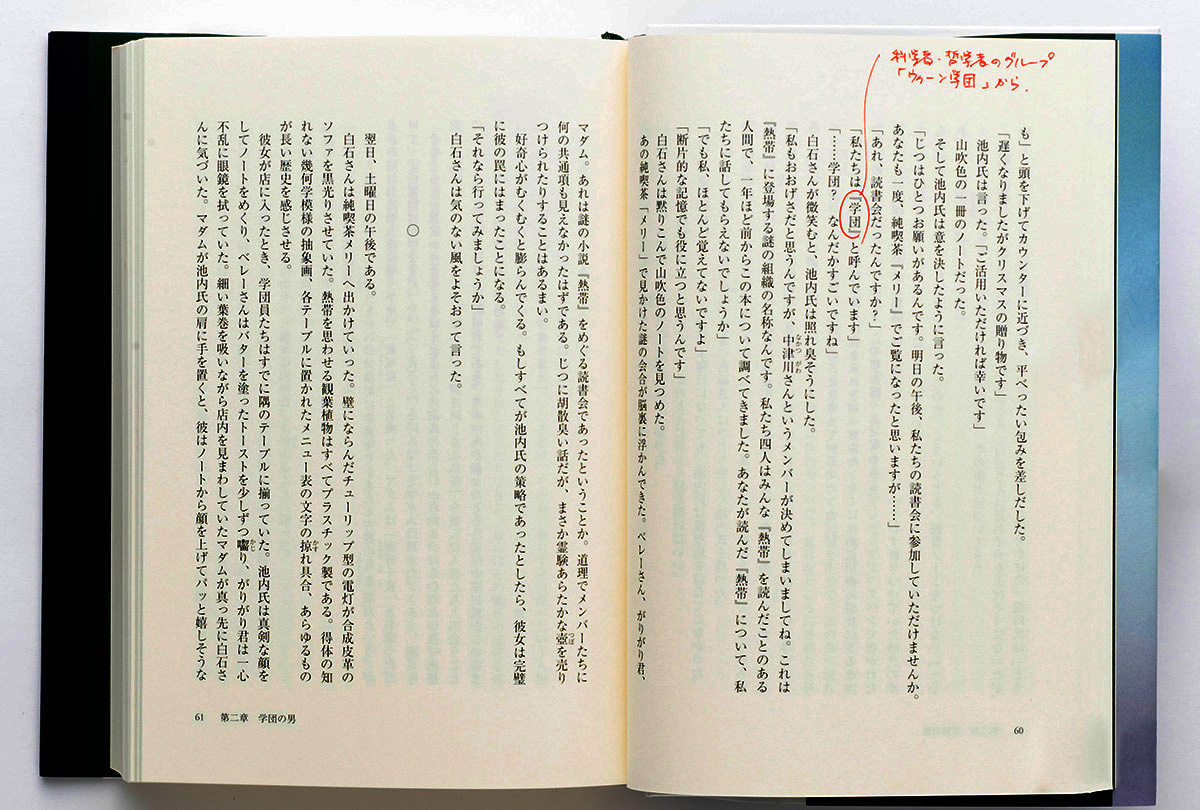 科学者・哲学者のグループ
「ウィーン学団」から.
も」と頭を下げてカウンターに近づき、平べったい包みを差しだした。
「遅くなりましたがクリスマスの贈り物です」
池内氏は言った。「ご活用いただければ幸いです」
山吹色の一冊のノートだった。
そして池内氏は意を決したように言った。
「じつはひとつお願いがあるんです。明日の午後、私たちの読書会に参加していただけませんか。
あなたも一度、純喫茶『メリー』でご覧になったと思いますが……」
「あれ、読書会だったんですか？」
「私たちは『学団』と呼んでいます」
「……学団？　なんだかすごいですね」
白石さんが微笑むと、池内氏は照れ臭そうにした。
「私もおおげさだと思うんですが、中津川さんというメンバーが決めてしまいましてね。これは
なかつがわ
『熱帯』に登場する謎の組織の名称なんです。私たち四人はみんな『熱帯』を読んだことのある
人間で、一年ほど前からこの本について調べてきました。あなたが読んだ『熱帯』について、私
たちに話してもらえないでしょうか」
「でも私、ほとんど覚えてないですよ」
「断片的な記憶でも役に立つと思うんです」
白石さんは黙りこんで山吹色のノートを見つめた。
あの純喫茶「メリー」で見かけた謎の会合が脳裏に浮かんできた。ベレーさん、がりがり君、
60
マダム。あれは謎の小説『熱帯』をめぐる読書会であったということか。道理でメンバーたちに
何の共通項も見えなかったはずである。じつに胡散臭い話だが、まさか霊験あらたかな壺を売り
つぼ
つけられたりすることはあるまい。
好奇心がむくむくと膨らんでくる。もしすべてが池内氏の策略であったとしたら、彼女は完璧
に彼の罠にはまったことになる。
「それなら行ってみましょうか」
白石さんは気のない風をよそおって言った。
○
翌日、土曜日の午後である。
白石さんは純喫茶メリーへ出かけていった。壁にならんだチューリップ型の電灯が合成皮革の
ソファを黒光りさせていた。熱帯を思わせる観葉植物はすべてプラスチック製である。得体の知
れない幾何学模様の抽象画、各テーブルに置かれたメニュー表の文字の掠れ具合、あらゆるもの
かす
が長い歴史を感じさせる。
彼女が店に入ったとき、学団員たちはすでに隅のテーブルに揃っていた。池内氏は真剣な顔を
してノートをめくり、ベレーさんはバターを塗ったトーストを少しずつ囓り、がりがり君は一心
かじ
不乱に眼鏡を拭っていた。細い葉巻を吸いながら店内を見まわしていたマダムが真っ先に白石さ
んに気づいた。マダムが池内氏の肩に手を置くと、彼はノートから顔を上げてパッと嬉しそうな
61　第二章　学団の男